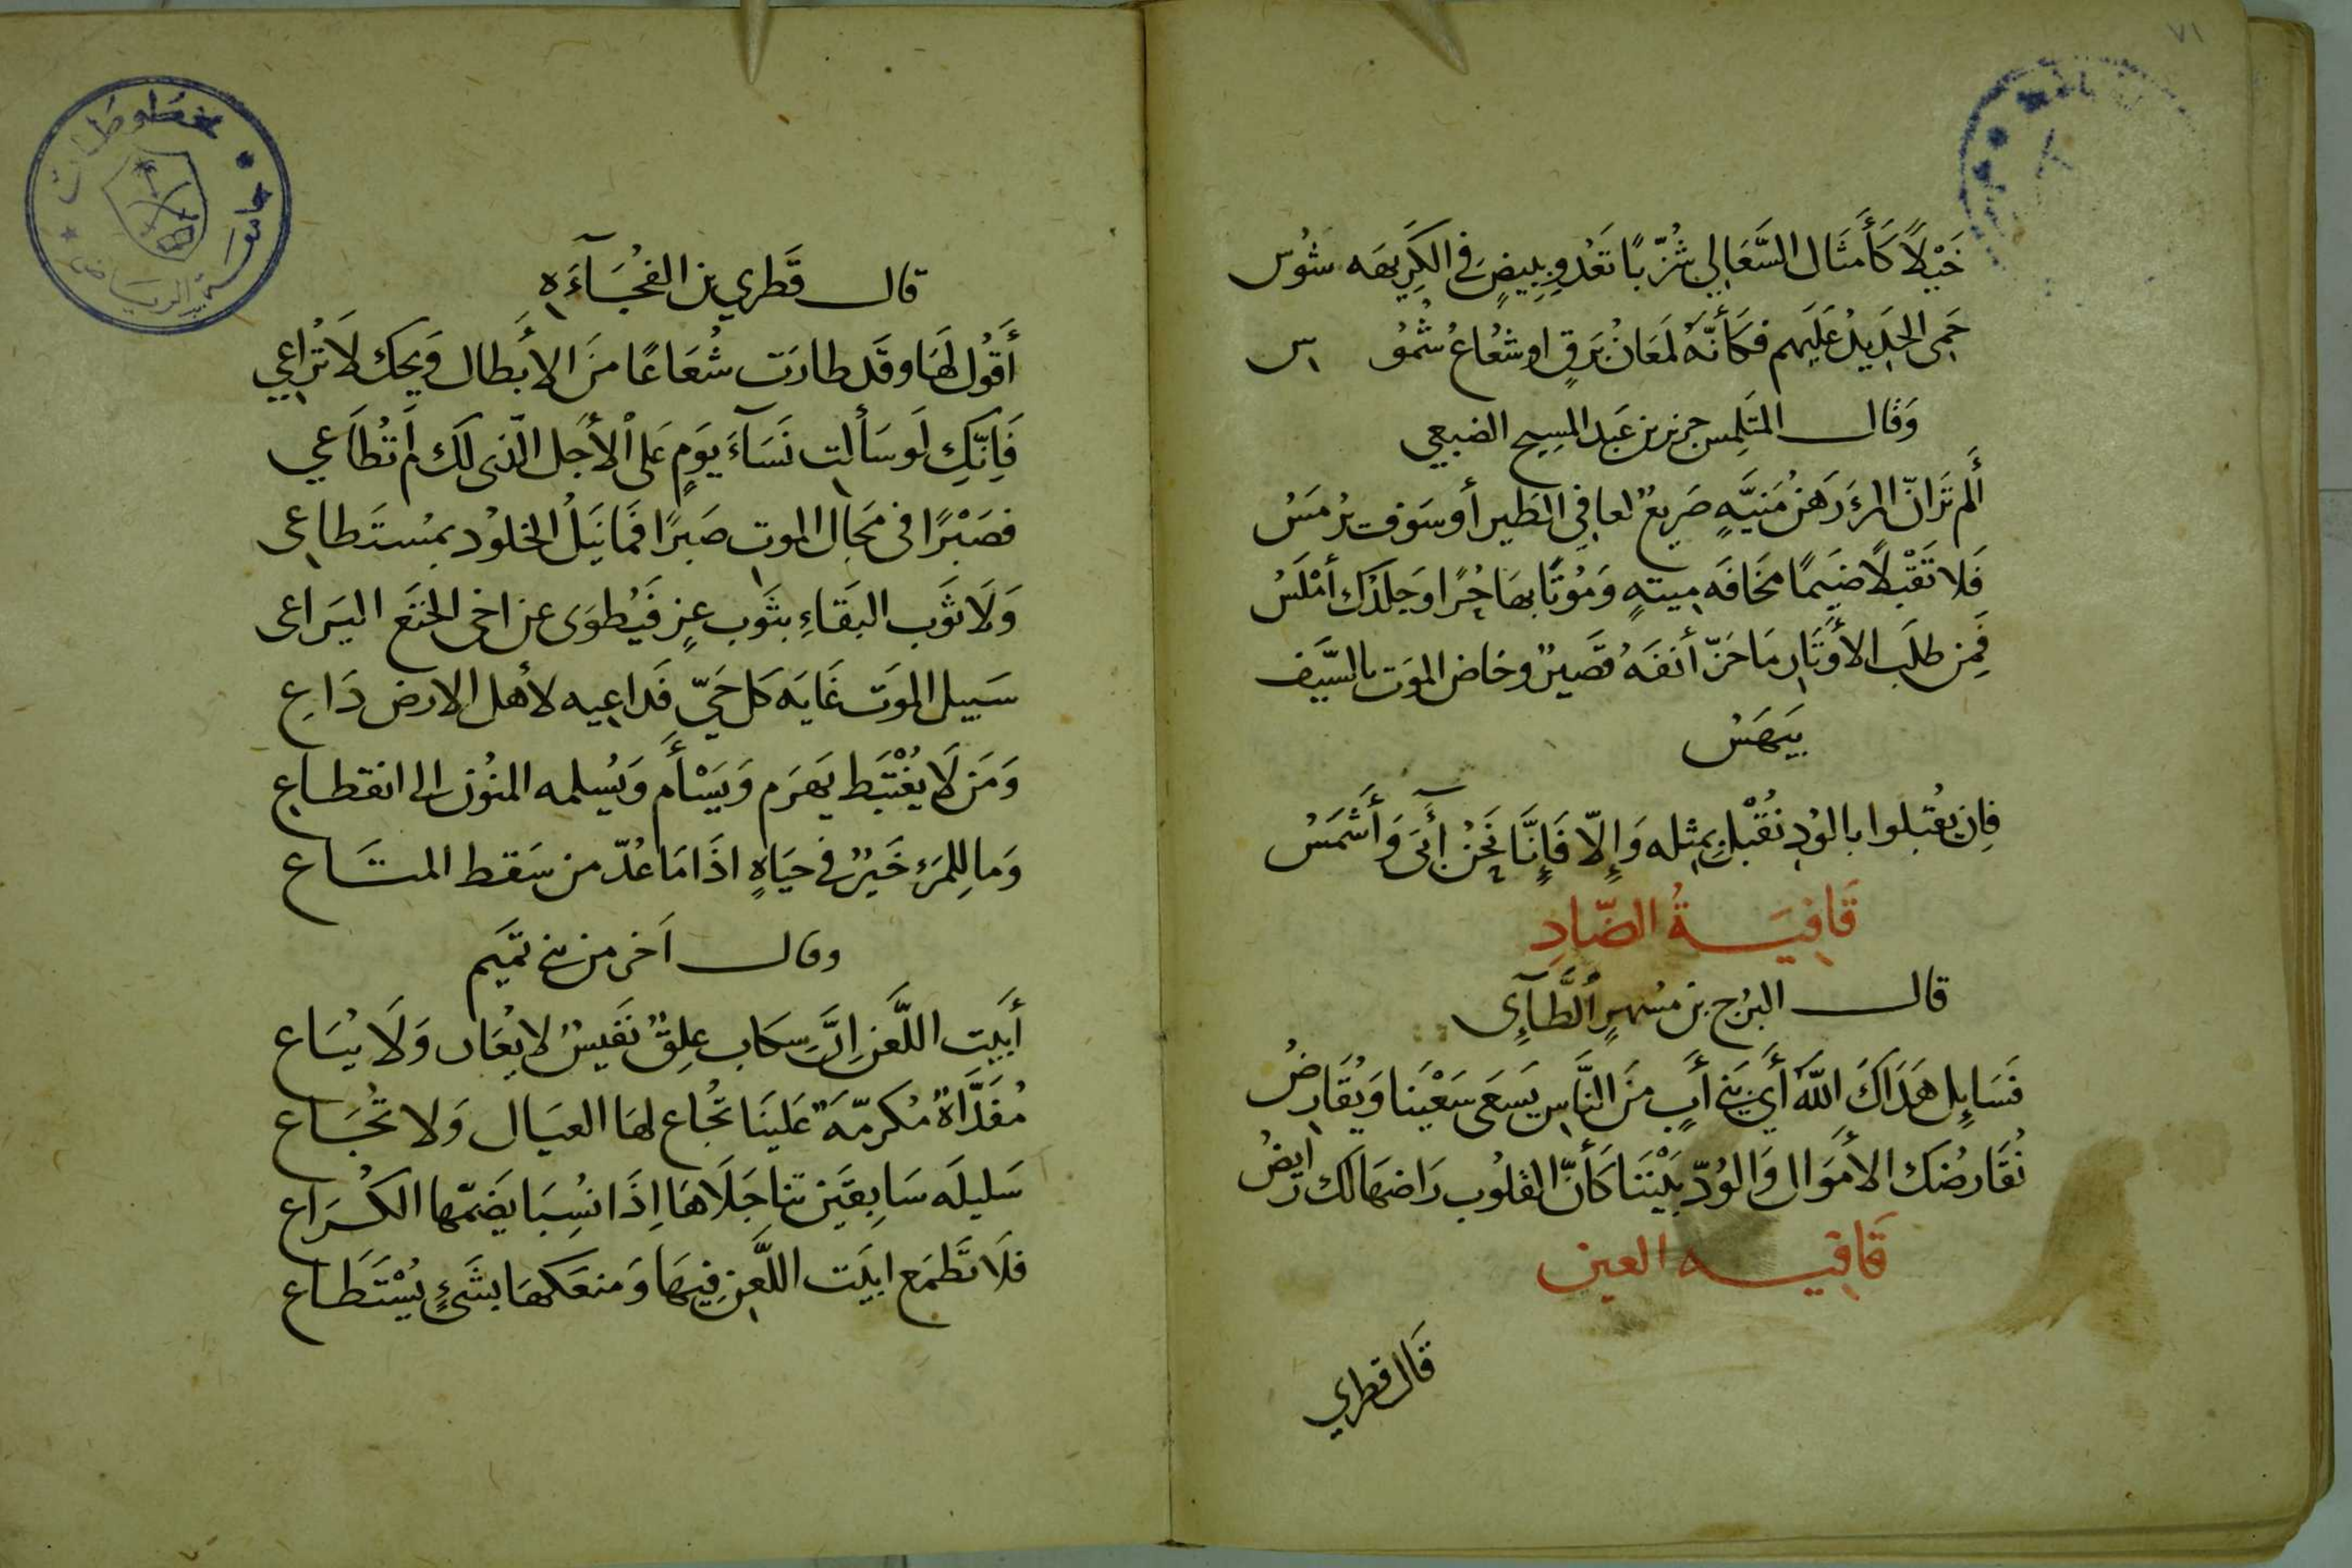 ٧١
خَيْلاً كَأَمثَال السَّعَالِي شُزّبًا تَعْدُو بِبِيضٍ فِي الكَرِيهَه شُوْس
حَمِى الحَدِيدُ عَلَيهم فكَأنّهُ لمَعَانُ بَرقٍ او شعُاعُ شُمُوُ س
وَقَال المتَلِمس جرير بن عَبد المسِيح الضبعِي
أَلم تَرَ انّ المرءَ رَهنُ مَنيَّهٍ صَرِيعٌ لعافِي الطَير أو سَوف يرُمَسُ
فَلا تَقْبلاً ضَيمًا مخَافَه مِيتهٍ وَمُوتًا بهَا حُرًا وَجلدُك أمْلَسُ
فَمِن طلَب الأَوتَارِ مَا حَزّ أنفَهُ قَصَيرٌ وخاض الموَت بالسَّيَف
بَيَهَسُ
فإن يُقبلوا بالوُدِ نُقْبل بمِثله وَإِلّا فَإِنَّا نَحنُ آبَى وَأَشَمَسُ
قَافِيَةُ الضّادِ
قال البرُج بن مسُهرٍ ألطَّآئِى
فَسَايِل هَدَاكَ اللّهَ أَيّ بَني أَبٍ مَنَ النَّاسِ يَسَعَى سَعْيَنا وَيُقَارِضُ
نُقَارضُك الأَموَال وَالوُدّ بَيْنَنَا كَأَنّ القلُوب رَاضهَا لَك رَايضُ
قَافيه العين
قَال قطرِي
قال قَطري بن الفجُآءَه
أَقوُل لهَا وقَد طارَت شُعَاعًا مَنَ الابَطال وَيحك لَا تُراعِي
فَاِنّكِ لَو سَألتِ نَسَآءَ يوَمٍ عَلى ألأجَل الّذى لَك لَم تُطَاعَي
فصَبْرًا فى مَجَال الموتِ صَبرًا فمَا نَيَلُ الخلوُد بمسُتَطاعِى
وَلَا ثَوب البَقَاءِ بثَوب عزٍ فَيُطوَى عن اخى الخنَع اليَراعى
سَبيل الموَت غَايَه كَل حَيّ فَداعِيه لأهل الارض دَاعِ
وَمَن لَا يغْتبَط يَهرَم وَيَسْأَم وَيسُلمه المنوُن الى انقطاعِ
وَما لِلمَرءِ خَيرٌ في حَيَاهٍ اذَا مَا عُدّ من سَقط المتَاع
وقال آخر من بني تميَم
أبَيت اللَّعن اِنَّ سَكَاب عِلِقٌ نَفَيسٌ لا يعُار وَلَا يبُاع
مُفَدَّاةٌ مُكرمّةٌ عَلَينَا تجُاع لهَا العيَال وَلا تجُاع
سَليلَه سَابِقَين تناجَلَاهَا اِذَا نسُِبَا يَضَمّها الكُراع
فلَا تَطَمَع ابَيَت اللَّعنِ فِيهَا وَمنعَكهَا بشَئٍ يسُْتَطَاع
مخطوطات
جامعة الرياض